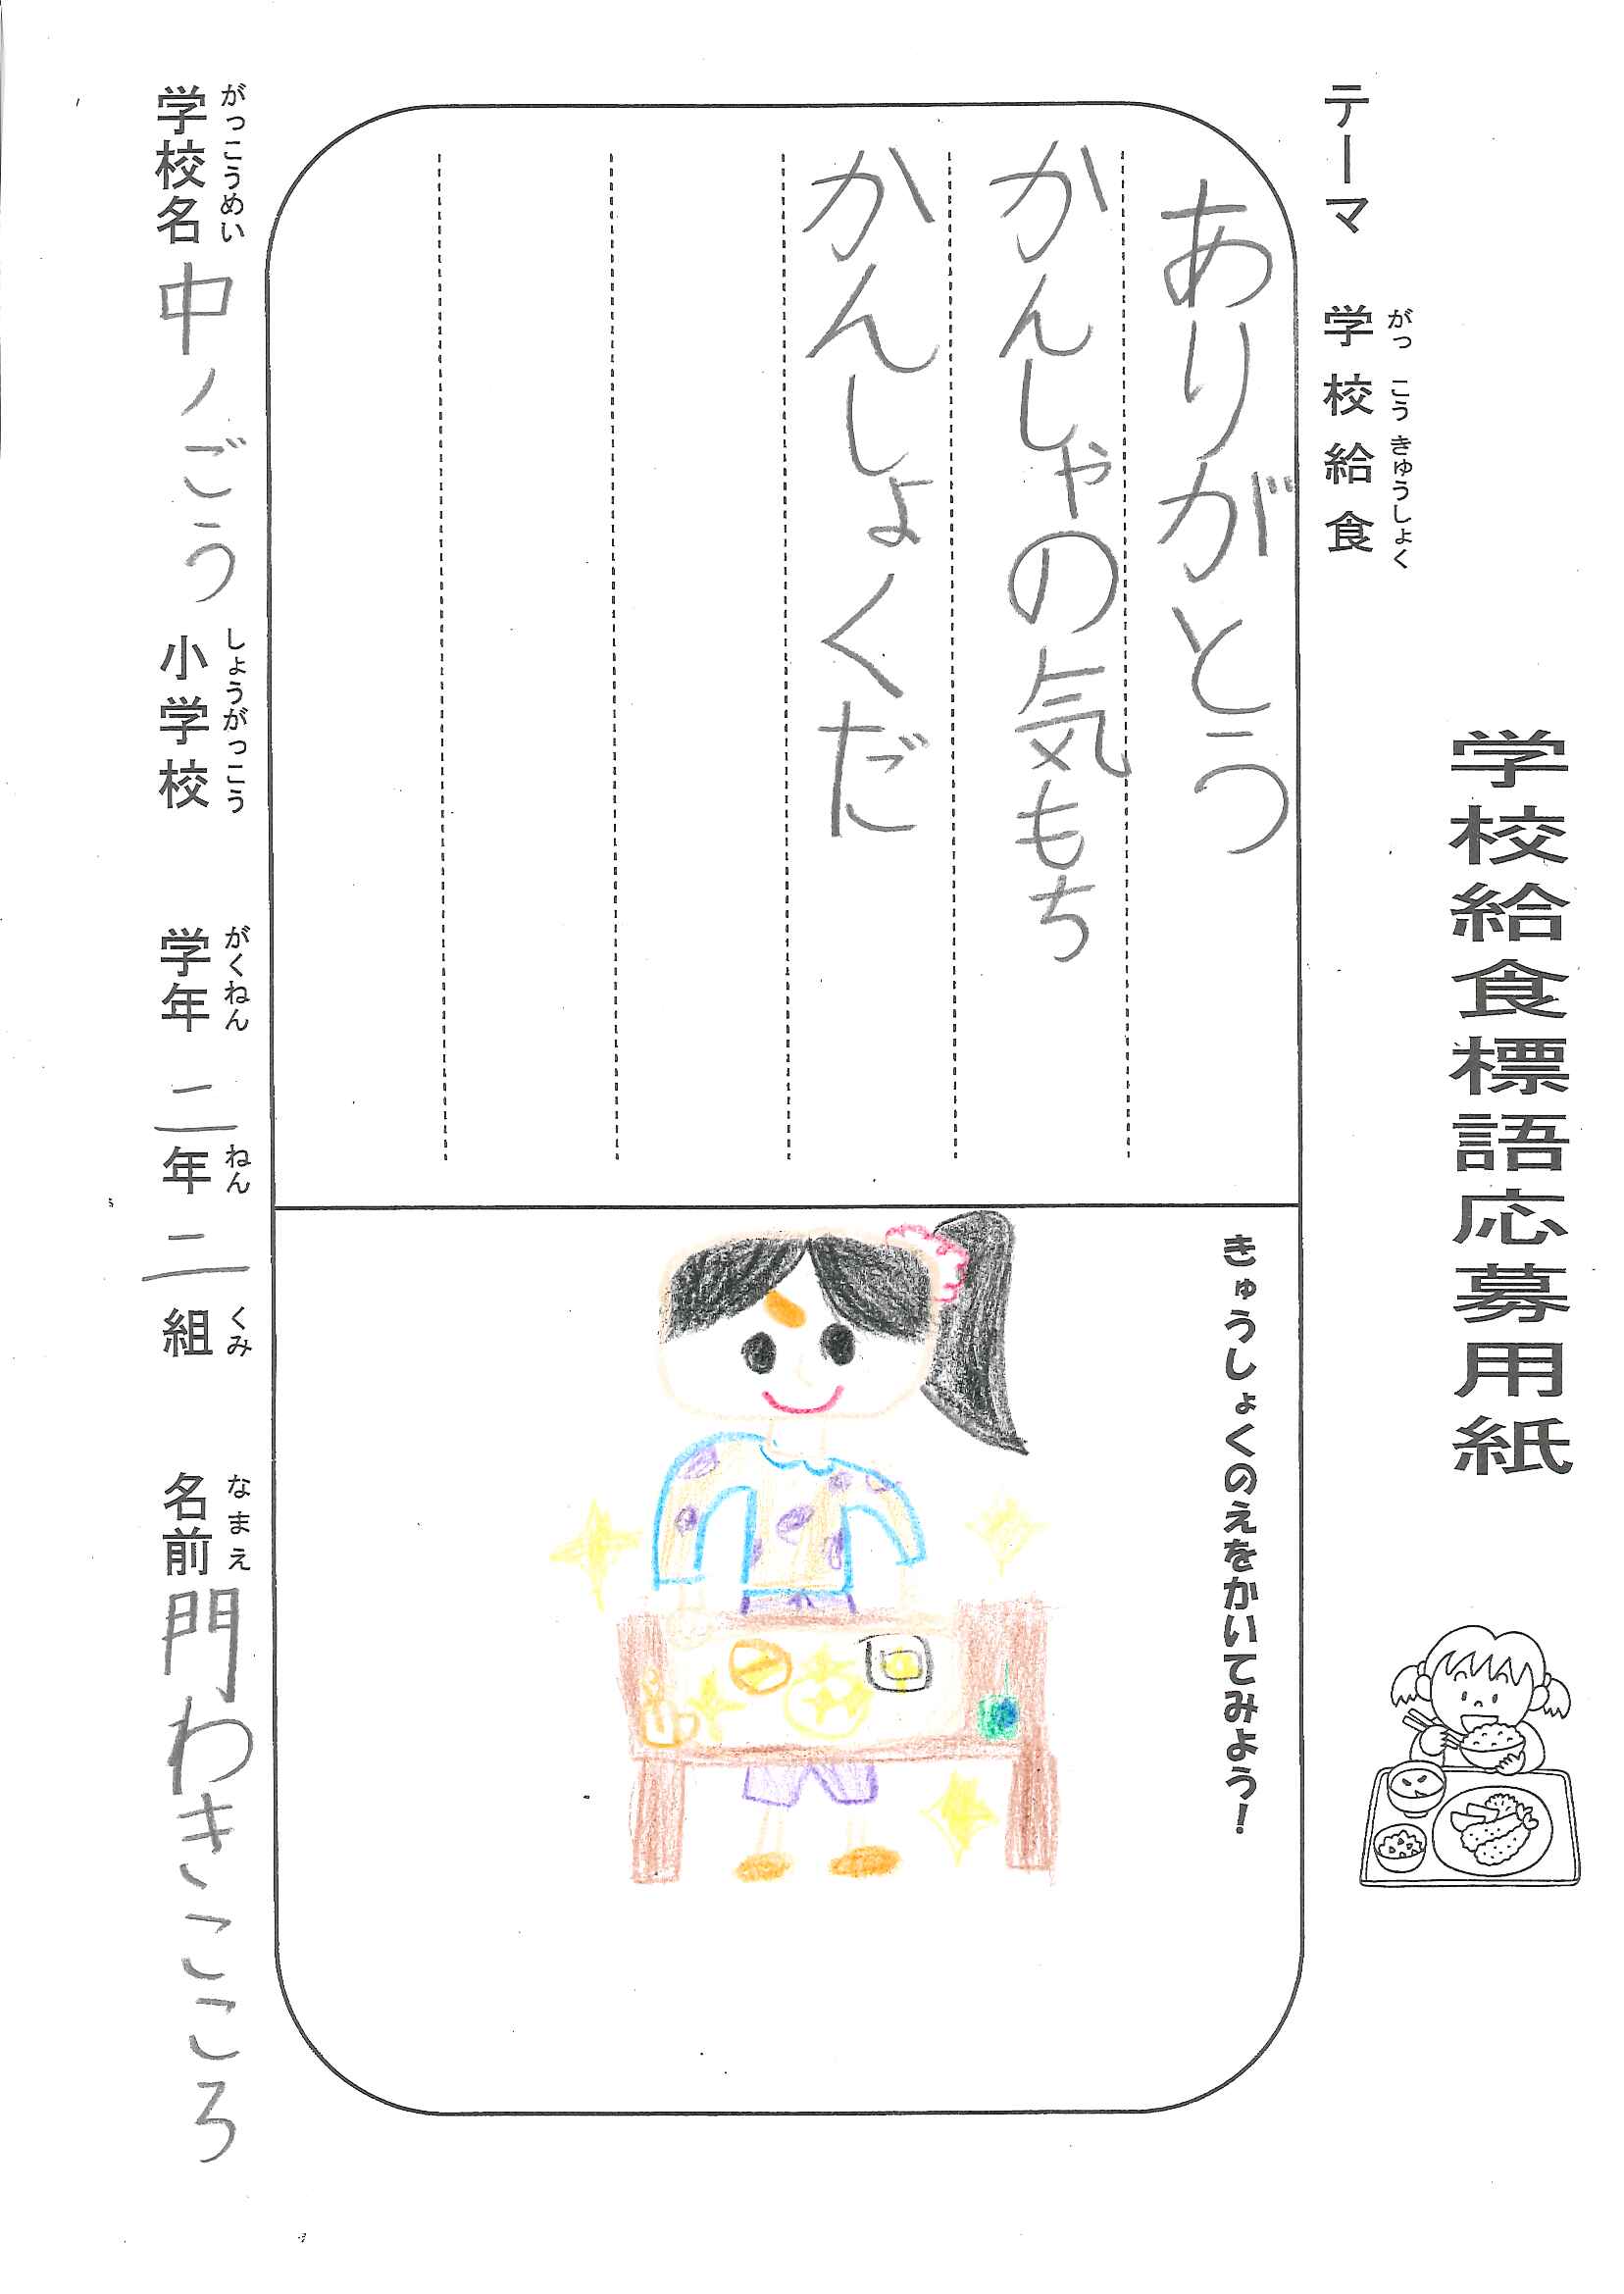 学校給食標語応募用紙
テーマ 学校給食
がっ こう きゅうしょく
ありがとう
かんしゃの気もち
かんしょくだ
きゅうしょくのえをかいてみよう!
学校名 中ノごう 小学校 学年 二年 二組 名前 門わきこころ
がっこうめい しょうがっこう がくねん ねん くみ なまえ